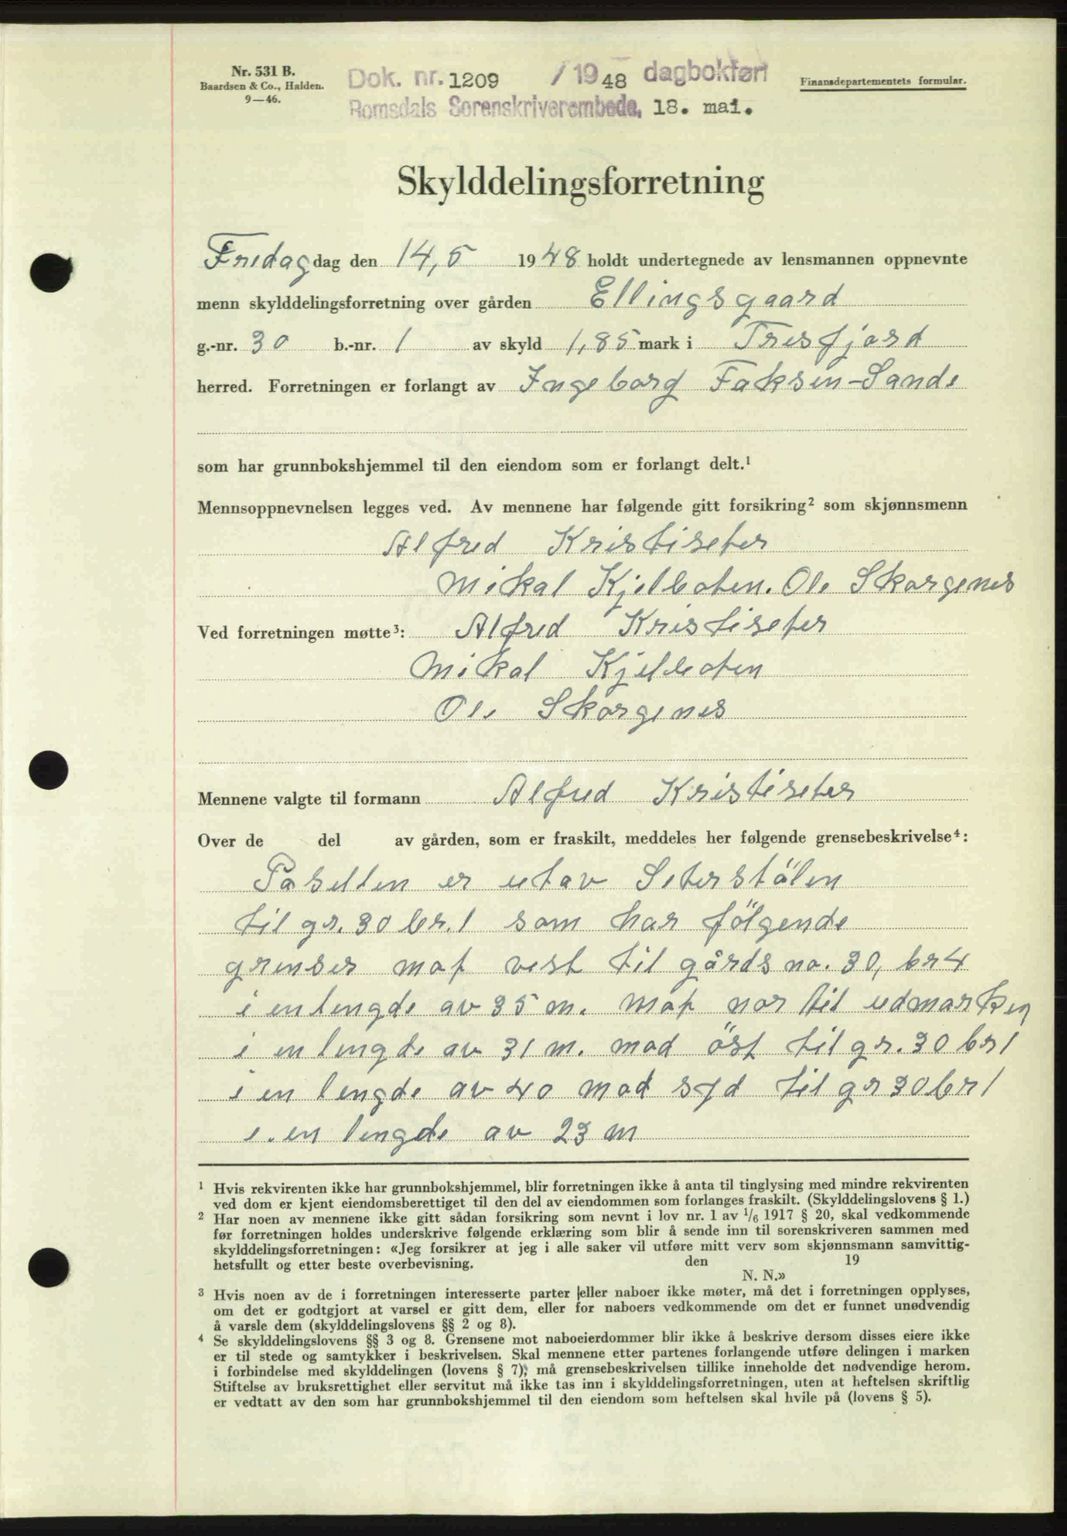 Nr. 531 B.
Baardsen & Co., Halden.
9—46.
Dok. nr. 1209 / 1948 dagbokført
Romsdals Sorenskriverembede, 18. mai.
Finansdepartementets formular.
Skylddelingsforretning
Fredag dag den 14,5 1948 holdt undertegnede av lensmannen oppnevnte
menn skylddelingsforretning over gården Ellingsgaard
g.-nr. 30 b.-nr. 1 av skyld 1,85 mark i Tresfjord
herred. Forretningen er forlangt av Ingeborg Faksen-Sande
som har grunnbokshjemmel til den eiendom som er forlangt delt.¹
Mennsoppnevnelsen legges ved. Av mennene har følgende gitt forsikring² som skjønnsmenn
Alfred Kristiseter
Mikal Kjelboten. Ole Skorgenes
Ved forretningen møtte³: Alfred Kristiseter
Mikal Kjelboten
Ole Skorgenes
Mennene valgte til formann Alfred Kristiseter
Over de del av gården, som er fraskilt, meddeles her følgende grensebeskrivelse⁴:
Parsellen er utav Seterstölen
til gr. 30 br. 1 som har fölgende
grenser mot vest til gårds no. 30, br 4
i en lengde av 35 m. mot nor til udmarken
i en lengde av 31 m. mod öst til gr. 30 br 1
i en lengde av 40 mod syd til gr 30 br 1
i en lengde av 23 m
¹ Hvis rekvirenten ikke har grunnbokshjemmel, blir forretningen ikke å anta til tinglysing med mindre rekvirenten
ved dom er kjent eiendomsberettiget til den del av eiendommen som forlanges fraskilt. (Skylddelingslovens § 1.)
² Har noen av mennene ikke gitt sådan forsikring som nevnt i lov nr. 1 av 1/6 1917 § 20, skal vedkommende
før forretningen holdes underskrive følgende erklæring som blir å sende inn til sorenskriveren sammen med
skylddelingsforretningen: «Jeg forsikrer at jeg i alle saker vil utføre mitt verv som skjønnsmann samvittig-
hetsfullt og etter beste overbevisning. den 19
N. N.»
³ Hvis noen av de i forretningen interesserte parter eller naboer ikke møter, må det i forretningen opplyses,
om det er godtgjort at varsel er gitt dem, eller for naboers vedkommende om det er funnet unødvendig
å varsle dem (skylddelingslovens §§ 2 og 8).
⁴ Se skylddelingslovens §§ 3 og 8. Grensene mot naboeierdommer blir ikke å beskrive dersom disses eiere ikke
er til stede og samtykker i beskrivelsen. Skal mennene etter partenes forlangende utføre delingen i marken
i forbindelse med skylddelingen (lovens § 7); må grensebeskrivelsen tillike inneholde det nødvendige herom.
Stiftelse av bruksrettighet eller servitut må ikke tas inn i skylddelingsforretningen, uten at heftelsen skriftlig
er vedtatt av den som har grunnbokshjemmel til den eiendom som heftelsen skal hvile på (lovens § 5).